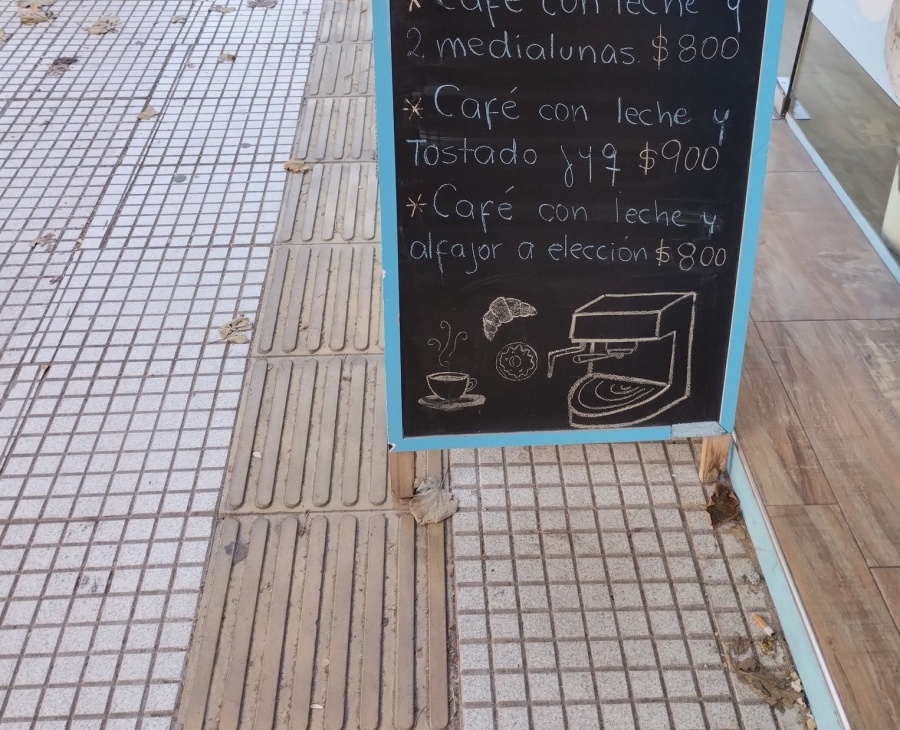 * Café con leche y
2 medialunas. $800
* Café con leche y
Tostado jyq $900
* Café con leche y
alfajor a elección $800